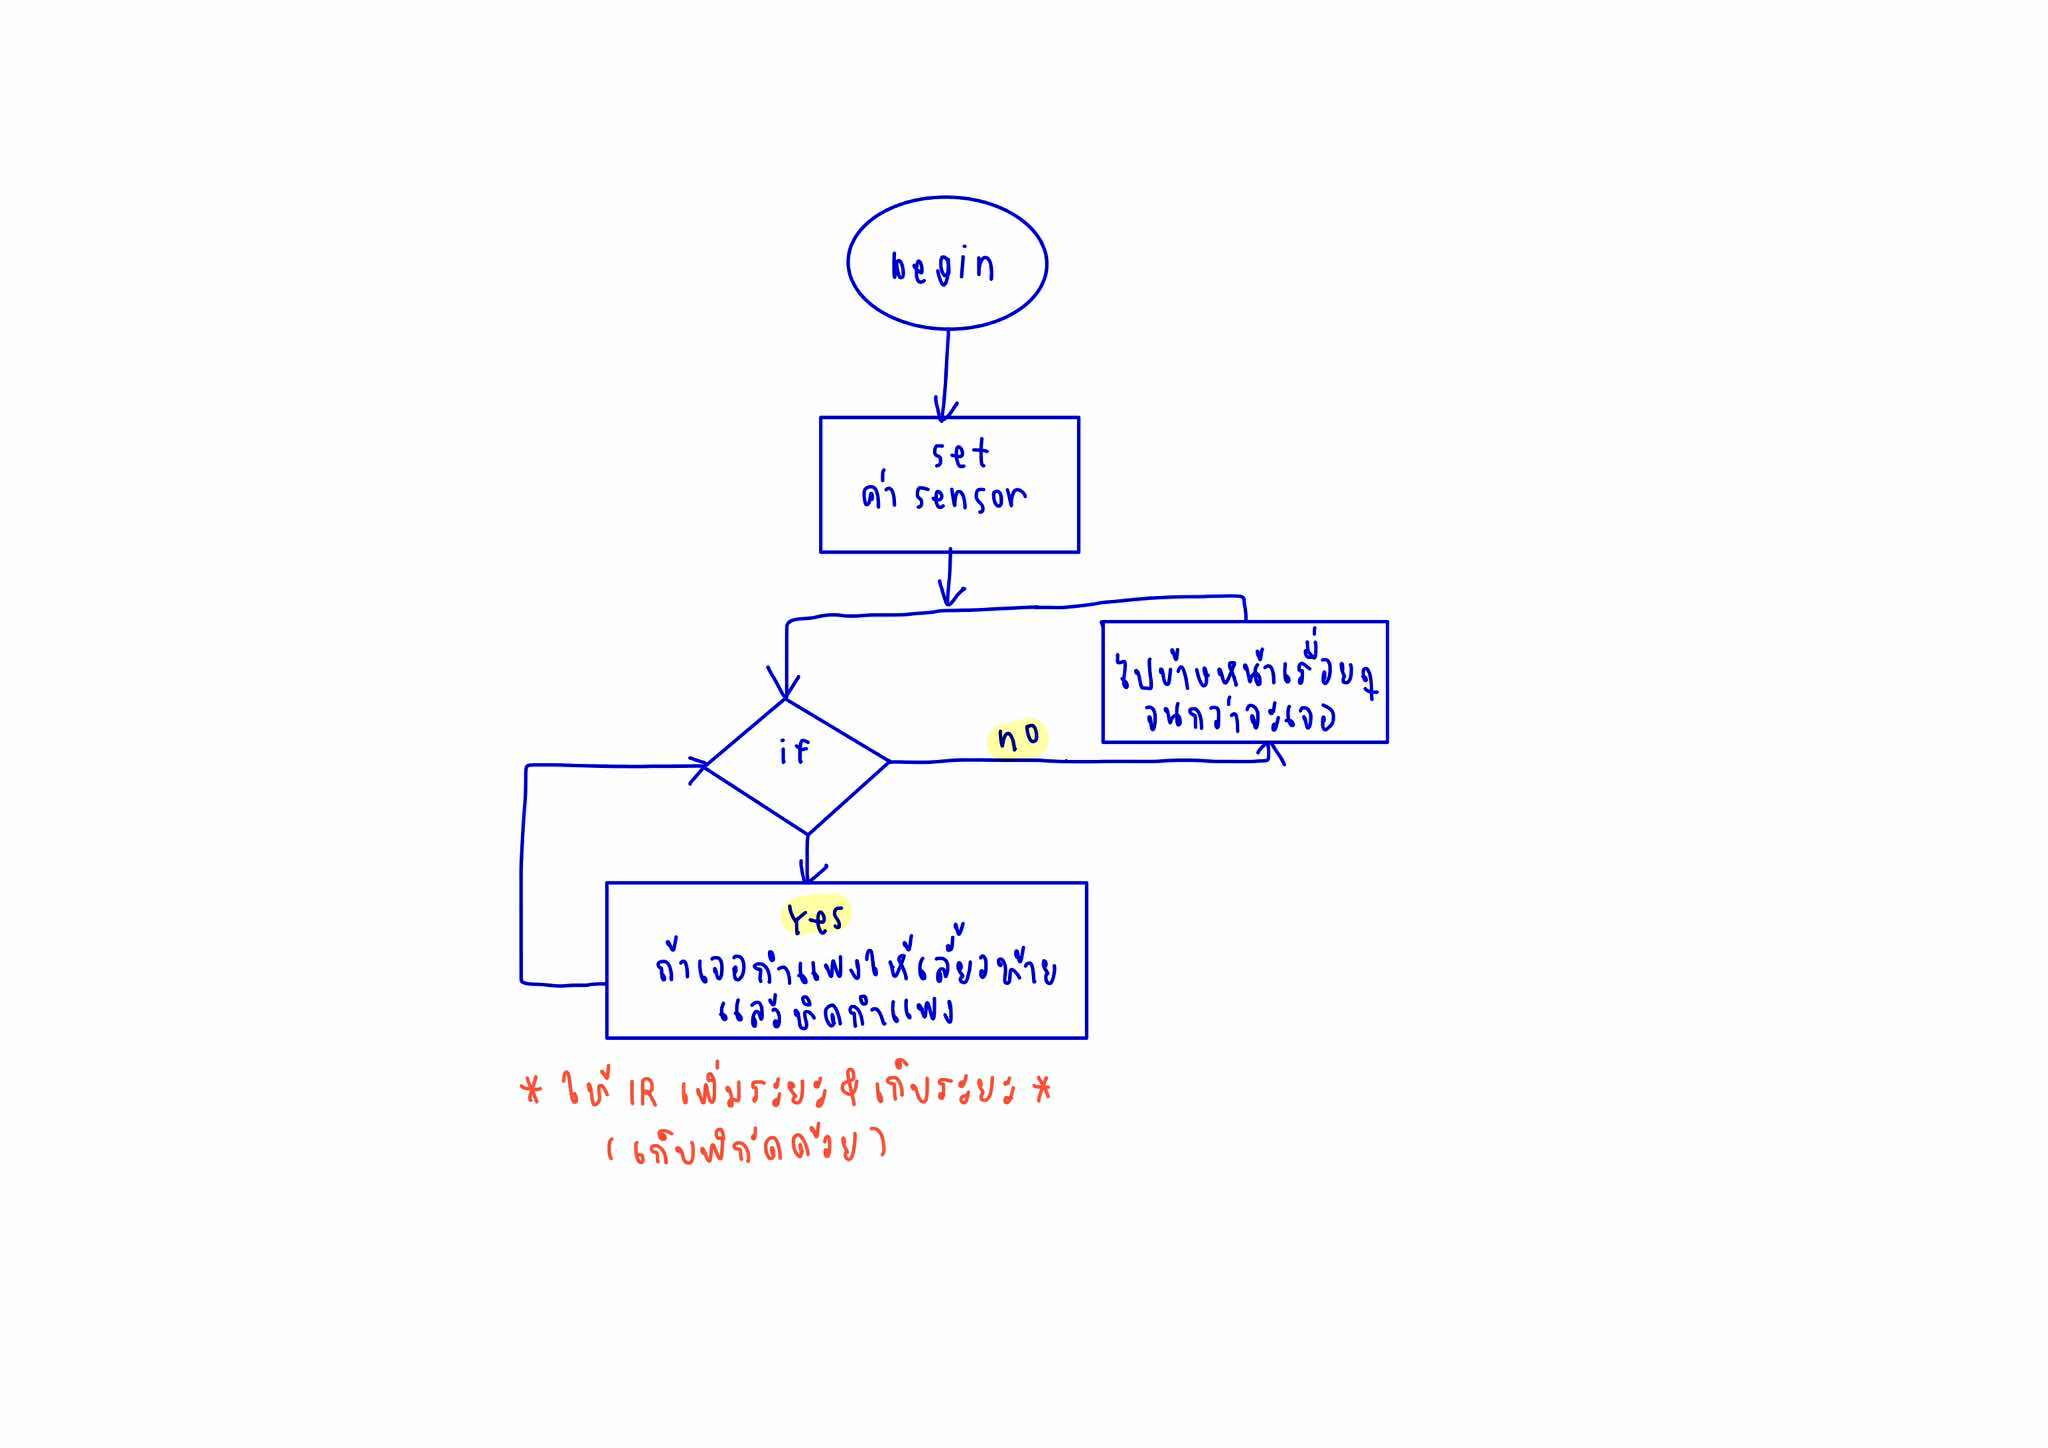 begin
set
ค่า sensor
ไปข้างหน้าเรื่อยๆ
จนกว่าจะเจอ
no
if
Yes
ถ้าเจอกำแพงให้เลี้ยวซ้าย
แล้วชิดกำแพง
* ให้ IR เพิ่มระยะ & เก็บระยะ *
(เก็บพิกัดด้วย)